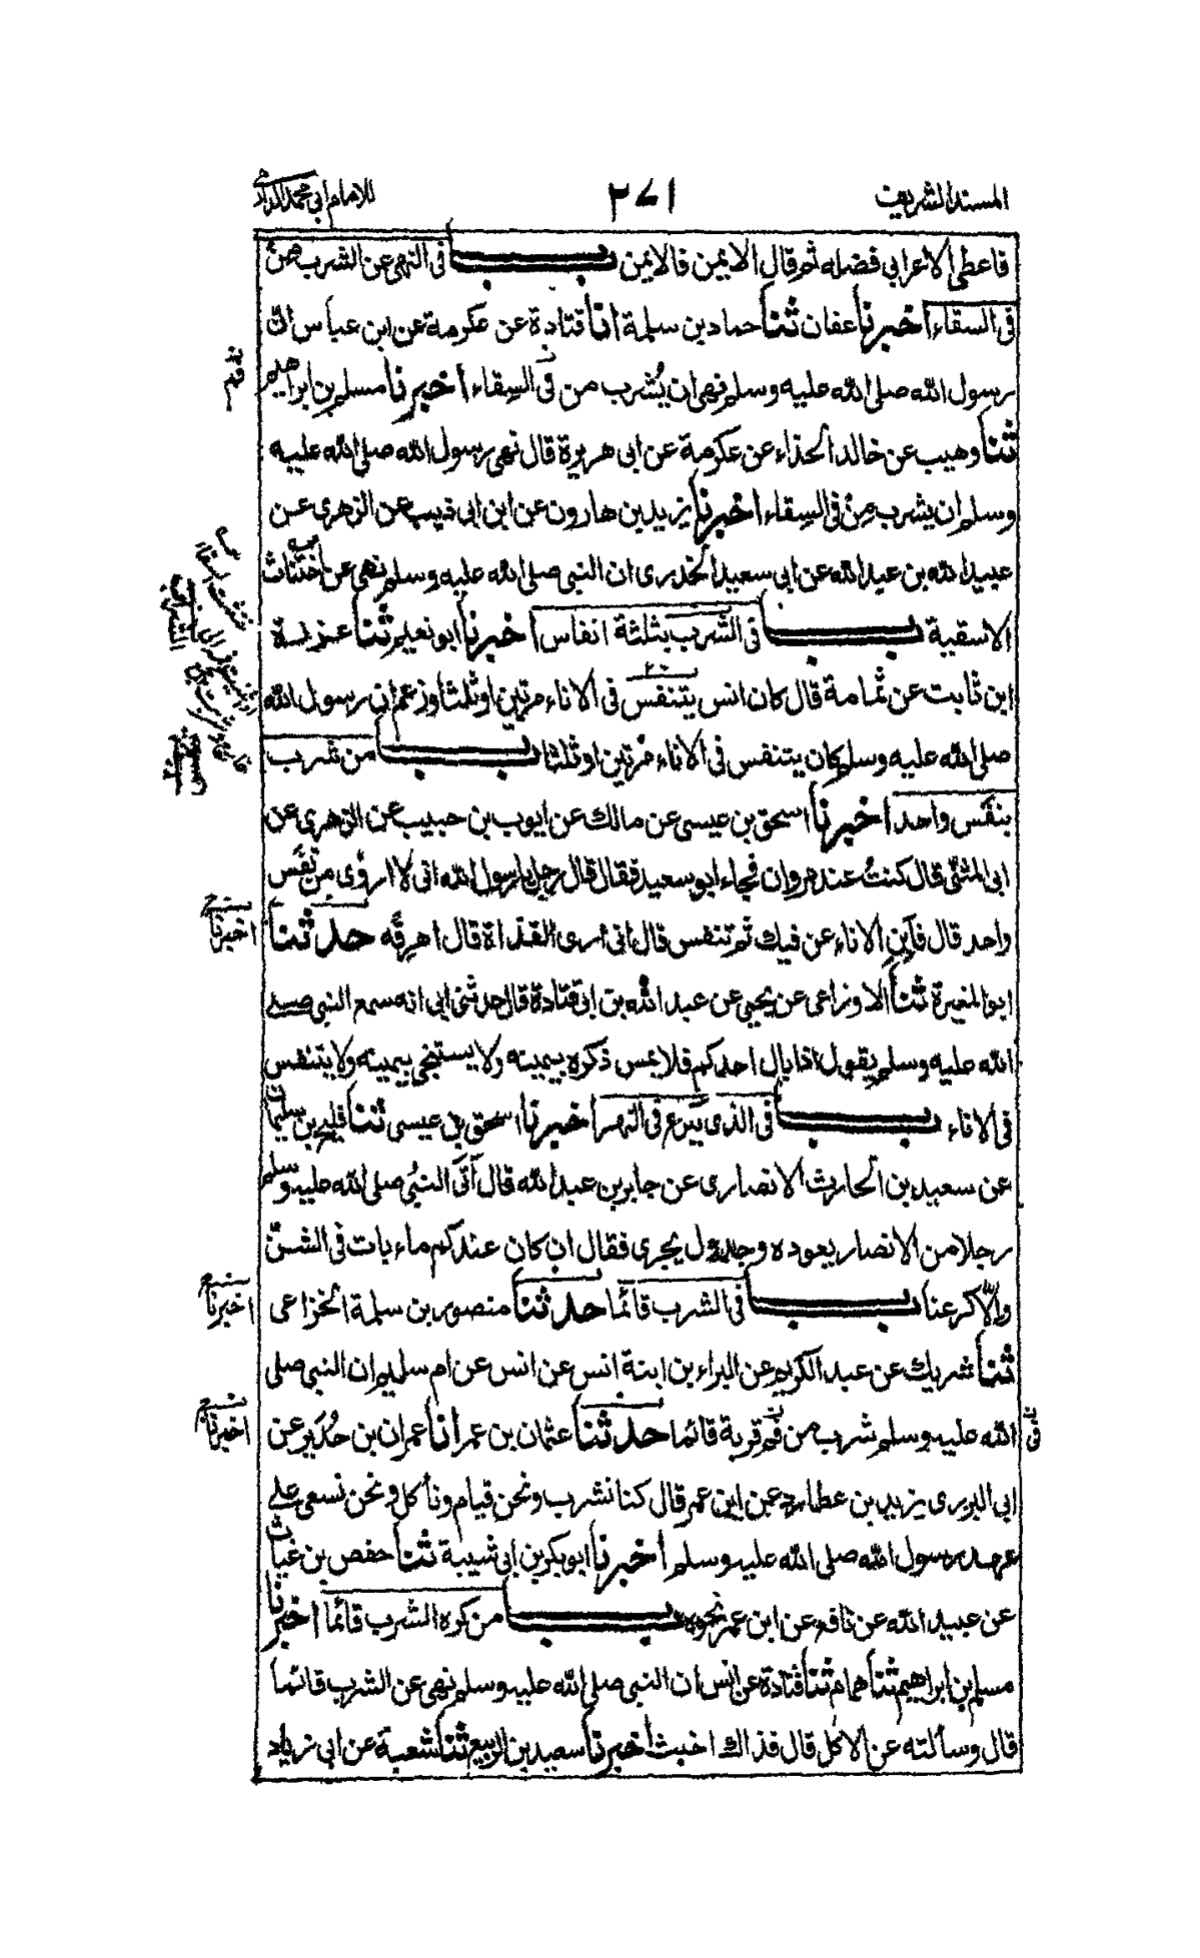 المسند الشريف ٢٧١ للامام ابي محمد الدارمي
فاعطى الاعرابي فضله ثم قال الايمن فالايمن باب في النهي عن الشرب من
في السقاء اخبرنا عفان ثنا حماد بن سلمة انا قتادة عن عكرمة عن ابن عباس ان
رسول الله صلى الله عليه وسلم نهى ان يُشرب من في السِقاء اخبرنا مسلم بن ابراهيم
فم
ثنا وهيب عن خالد الحذاء عن عكرمة عن ابى هريرة قال نهى رسول الله صلى الله عليه
وسلم ان يشرب مِنْ في السِقاء اخبرنا يزيد بن هارون عن ابن ابى ذيب عن الزهرى عن
عبيد الله بن عبد الله عن ابى سعيد الخدرى ان النبي صلى الله عليه وسلم نهى عن اختناث
الاسقية باب في الشرب بثلثة انفاس اخبرنا ابو نعيم ثنا عزرة
ابن ثابت عن ثمامة قال كان انس يتنفس في الاناء مرتين او ثلثا وزعم ان رسول الله
صلى الله عليه وسلم كان يتنفس في الاناء مرتين او ثلثا باب من شرب
بنفَس واحد اخبرنا اسحق بن عيسى عن مالك عن ايوب بن حبيب عن الزهرى عن
ابى المثنى قال كنتُ عند مروان فجاء ابو سعيد فقال قال رجل يا رسول الله انى لا اروٰى من نفَس
واحد قال فاَبِنِ الاناء عن فيك ثم تنفس قال انى ارى القذاة قال اهرِقْه حدثنا
اخبرنا
ابو المغيرة ثنا الاوزاعى عن يحيى عن عبد الله بن ابى قتادة قال حدثنى ابى انه سمع النبى صلى
الله عليه وسلم يقول اذا بال احدكم فلا يمس ذكره بيمينه ولا يستنجى بيمينه ولا يتنفس
في الاناء باب في الذى يكرع في النهر اخبرنا اسحق بن عيسى ثنا فليح بن سليمان
عن سعيد بن الحارث الانصارى عن جابر بن عبد الله قال اَتَى النبىُ صلى الله عليه وسلم
رجلا من الانصار يعوده وجدول يجرى فقال ان كان عندكم ماء بات في الشنّ
والا كرعنا باب في الشرب قائما حدثنا منصور بن سلمة الخزاعى
اخبرنا
ثنا شريك عن عبد الكريم عن البراء بن ابنة انس عن انس عن ام سليم ان النبي صلى
الله عليه وسلم شرب من فم قربة قائما حدثنا عثمان بن عمر انا عمران بن حُدَير عن
في
اخبرنا
ابى البزرى يزيد بن عطارد عن ابن عمر قال كنا نشرب ونحن قيام وناكل ونحن نسعى على
عهد رسول الله صلى الله عليه وسلم اخبرنا ابو بكر بن ابى شيبة ثنا حفص بن غياث
عن عبيد الله عن نافع عن ابن عمر نحوه باب من كره الشرب قائما اخبرنا
مسلم بن ابراهيم ثنا همام ثنا قتادة عن انس ان النبى صلى الله عليه وسلم نهى عن الشرب قائما
قال وسألته عن الاكل قال فذاك اخبث اخبرنا سعيد بن الربيع ثنا شعبة عن ابى زياد